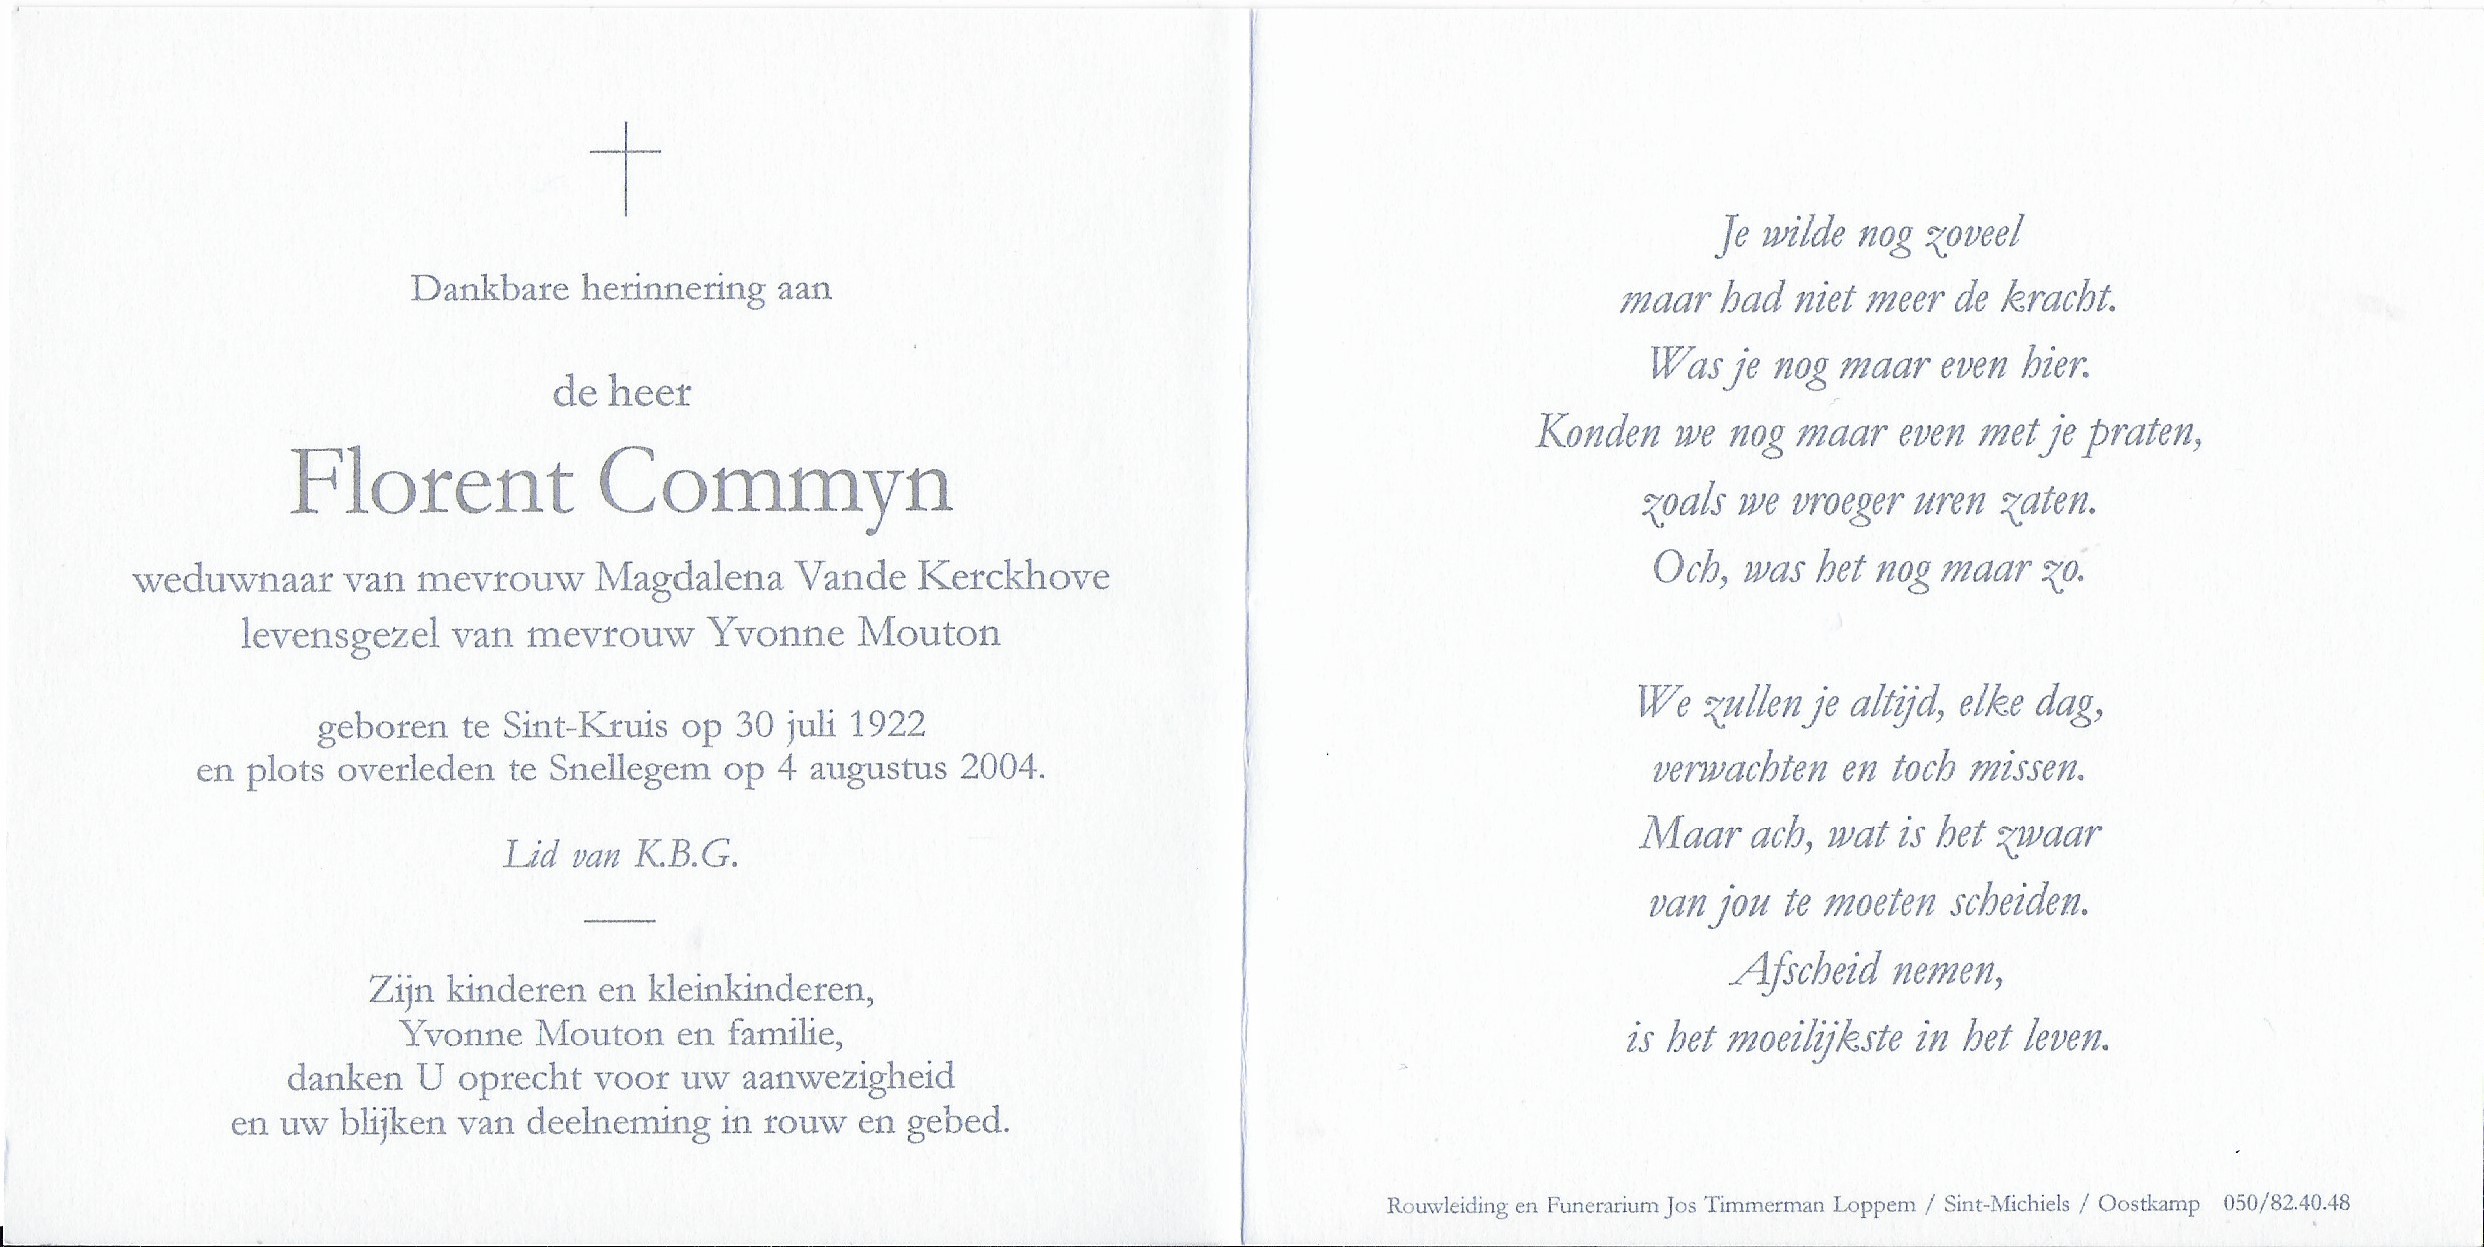 Dankbare herinnering aan
de heer
Florent Commyn
weduwnaar van mevrouw Magdalena Vande Kerckhove
levensgezel van mevrouw Yvonne Mouton
geboren te Sint-Kruis op 30 juli 1922
en plots overleden te Snellegem op 4 augustus 2004.
Lid van K.B.G.
Zijn kinderen en kleinkinderen,
Yvonne Mouton en familie,
danken U oprecht voor uw aanwezigheid
en uw blijken van deelneming in rouw en gebed.
Je wilde nog zoveel
maar had niet meer de kracht.
Was je nog maar even hier.
Konden we nog maar even met je praten,
zoals we vroeger uren zaten.
Och, was het nog maar zo.
We zullen je altijd, elke dag,
verwachten en toch missen.
Maar ach, wat is het zwaar
van jou te moeten scheiden.
Afscheid nemen,
is het moeilijkste in het leven.
Rouwleiding en Funerarium Jos Timmerman Loppem / Sint-Michiels / Oostkamp 050/82.40.48